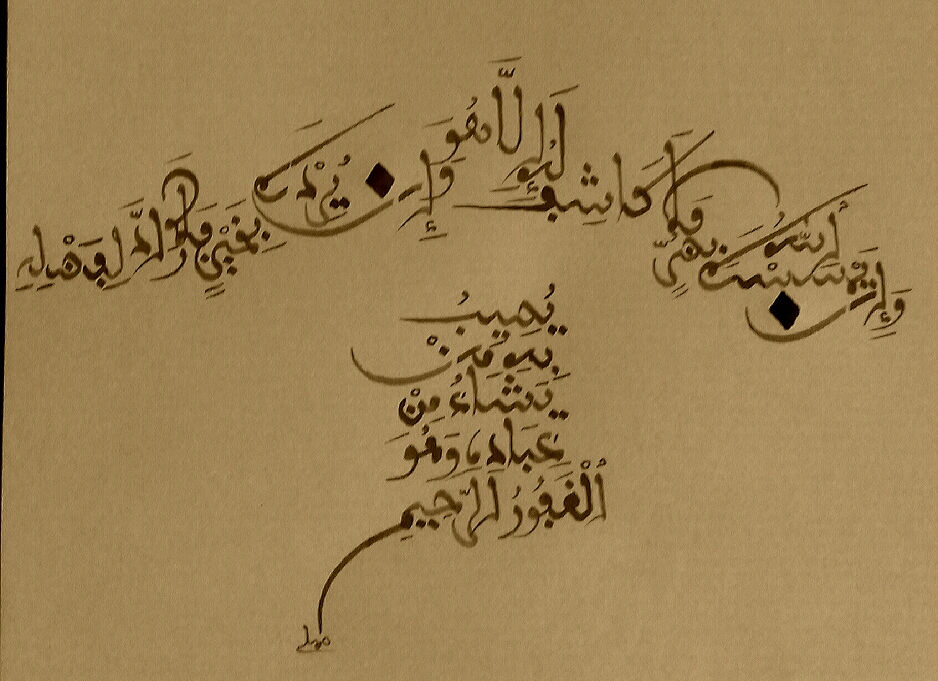 وَإِن يَمْسَسْكَ اللَّهُ بِضُرٍّ فَلَا كَاشِفَ لَهُ إِلَّا هُوَ وَإِن يُرِدْكَ بِخَيْرٍ فَلَا رَادَّ لِفَضْلِهِ
يُصِيبُ
بِهِ مَنْ
يَشَاءُ مِنْ
عِبَادِهِ وَهُوَ
الْغَفُورُ الرَّحِيمُ